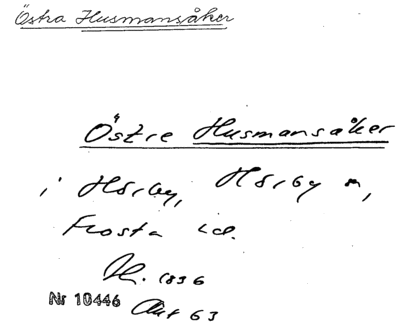 Östra Husmansåker
Östre Husmansåker
i Hörby, Hörby sn,
Frosta hd.
H. 1836
Nr 10446 Akt 63